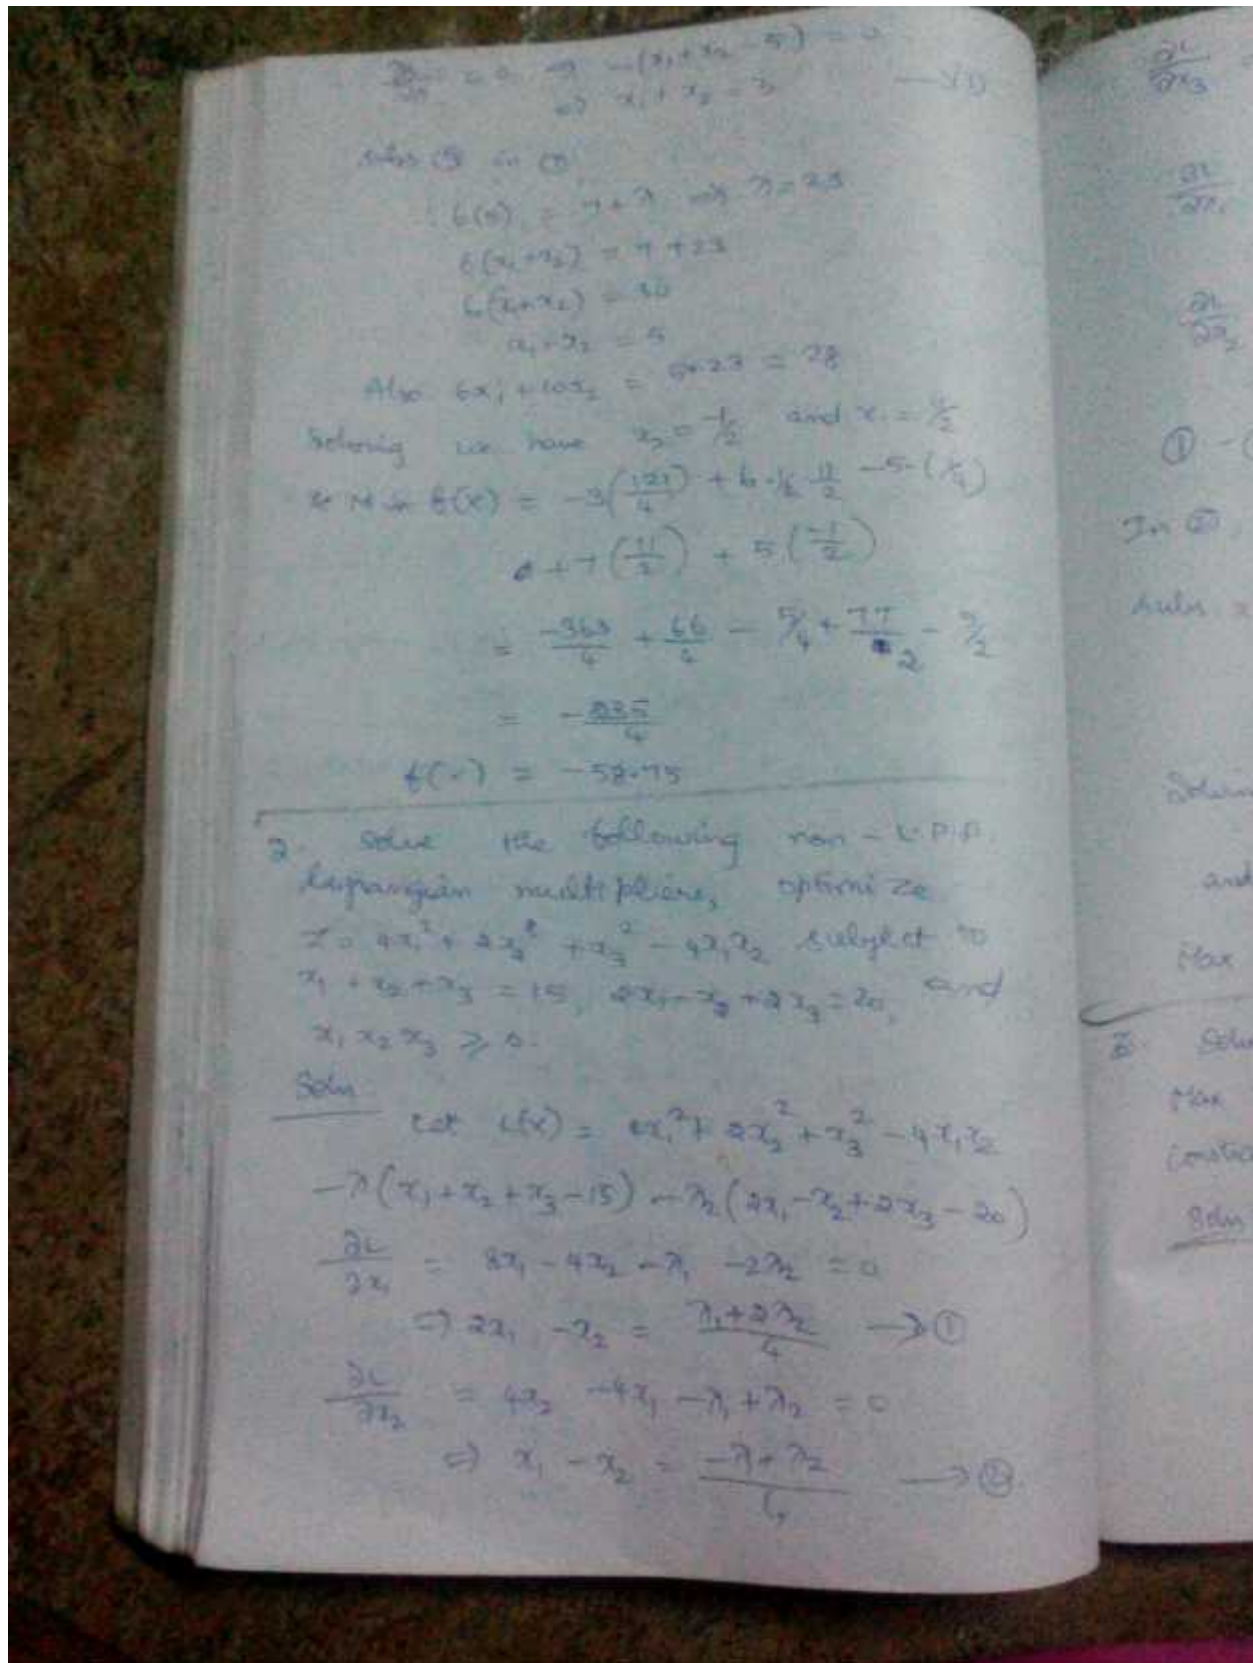 = 0 ⇒ -(x₁+x₂-5) = 0
⇒ x₁ + x₂ = 5 → (3)
subs (3) in (1)
6(5) = 7+λ ⇒ λ = 23
6(x₁+x₂) = 7+23
6(x₁+x₂) = 30
x₁+x₂ = 5
Also 6x₁+10x₂ = 5+23 = 28
Solving we have x₂ = -1/2 and x₁ = 11/2
f(x) = -3(121/4) + 6·1/2 11/2 -5-(1/4)
+7(11/2) + 5(-1/2)
= -363/4 + 66/4 - 5/4 + 77/2 - 5/2
= -235/4
f(x) = -58.75
2. Solve the following non-L.P.P.
Lagrangian multipliers, optimize
Z = 4x₁² + 2x₂² + x₃² - 4x₁x₂ subject to
x₁ + x₂ + x₃ = 15, 2x₁ - x₂ + 2x₃ = 20, and
x₁ x₂ x₃ ≥ 0.
Soln
Let L(x) = 4x₁² + 2x₂² + x₃² - 4x₁x₂
-λ(x₁+x₂+x₃-15) - λ₂(2x₁-x₂+2x₃-20)
∂L/∂x₁ = 8x₁ - 4x₂ - λ₁ - 2λ₂ = 0
⇒ 2x₁ - x₂ = (λ₁+2λ₂)/4 → ①
∂L/∂x₂ = 4x₂ - 4x₁ - λ₁ + λ₂ = 0
⇒ x₁ - x₂ = (-λ₁+λ₂)/4 → ②.
∂L/∂x₃ =
∂L/∂λ₁
∂L/∂λ₂
① -
In ②,
subs
Solvin
and
Max
3. Solve
Max
Soln